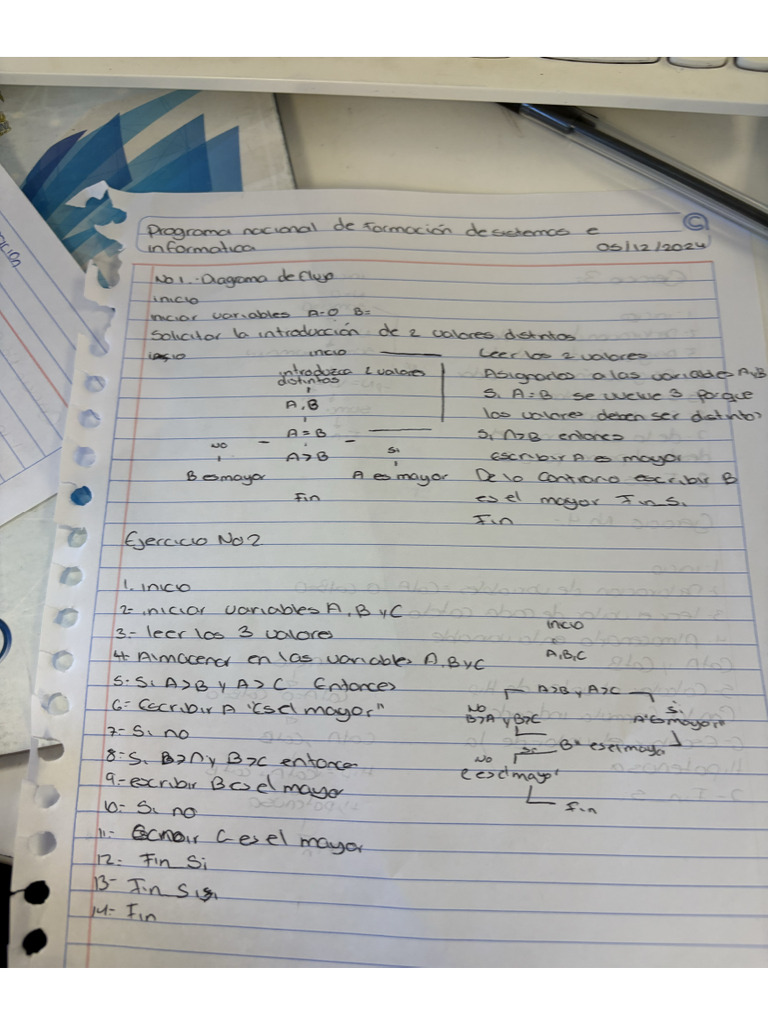 Programa nacional de formación de sistemas e
informatica 05/12/2024
©
No 1.- Diagrama de flujo
inicio
iniciar variables A=0 B=
Solicitar la introducción de 2 valores distintos
inicio
inicio
introduzca 2 valores
distintos
A, B
A = B
A > B
NO
Si
B es mayor
A es mayor
Fin
Leer los 2 valores
Asignarlos a las variables A, B
Si A=B se vuelve 3 porque
los valores deben ser distintos
Si A>B entonces
escribir A es mayor
De lo contrario escribir B
es el mayor Fin Si
Fin
Ejercicio No 2
1. inicio
2- iniciar variables A, B y C
3- leer los 3 valores
4- Almacenar en las variables A, B y C
5- Si A>B y A>C Entonces
6- Escribir A "Es el mayor"
7- Si no
8- Si B>A y B>C entonces
9- escribir B es el mayor
10- Si no
11- Escribir C es el mayor
12- Fin Si
13- Fin Si
14- Fin
inicio
A, B, C
A>B y A>C
NO
Si
B>A y B>C
A "es mayor"
Si
B" es el mayor
NO
C es el mayor"
Fin